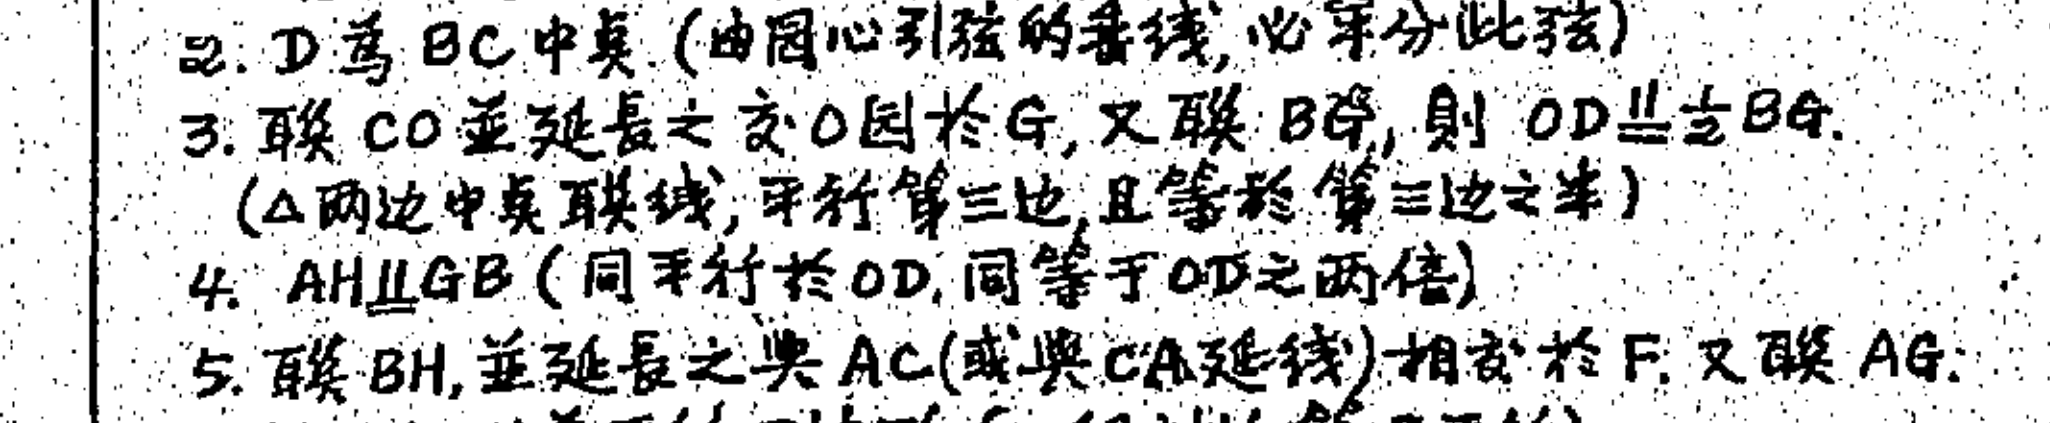 2. D為 BC中點 (由圆心引弦的垂线, 必平分此弦)
3. 联 CO 並延長之交O园於G, 又联 BG, 則 OD⩨½BG.
(△两边中點联线, 平行第三边, 且等於第三边之半)
4. AH⩨GB (同平行於OD, 同等于OD之两倍)
5. 联 BH, 並延長之與 AC(或與CA延线)相交於F. 又联 AG.